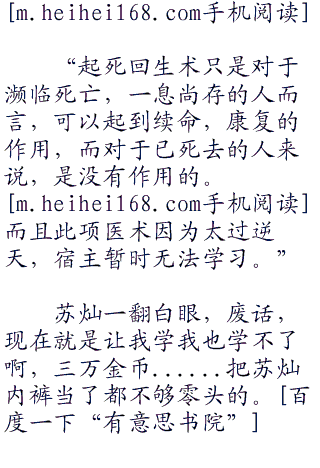 [m.heihei168.com手机阅读]
“起死回生术只是对于
濒临死亡，一息尚存的人而
言，可以起到续命，康复的
作用，而对于已死去的人来
说，是没有作用的。
[m.heihei168.com手机阅读]
而且此项医术因为太过逆
天，宿主暂时无法学习。”
苏灿一翻白眼，废话，
现在就是让我学我也学不了
啊，三万金币......把苏灿
内裤当了都不够零头的。[百
度一下“有意思书院”]